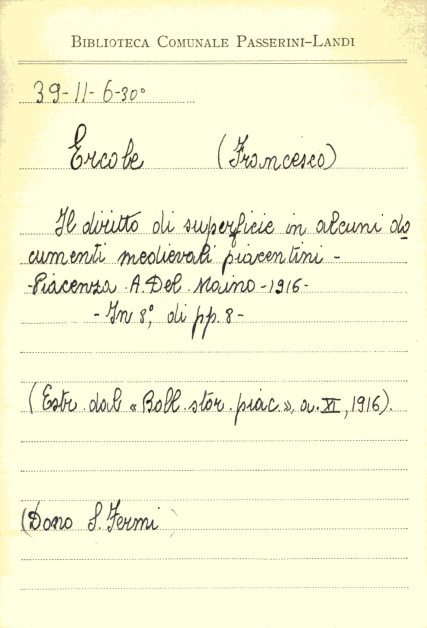 BIBLIOTECA COMUNALE PASSERINI-LANDI
39-11-6-30°
Ercole (Francesco)
Il diritto di superficie in alcuni do
cumenti medievali piacentini -
-Piacenza A. Del Maino -1916-
- In 8°, di pp. 8-
(Estr. dal «Boll. stor. piac.», a. XI, 1916).
(Dono S. Fermi)